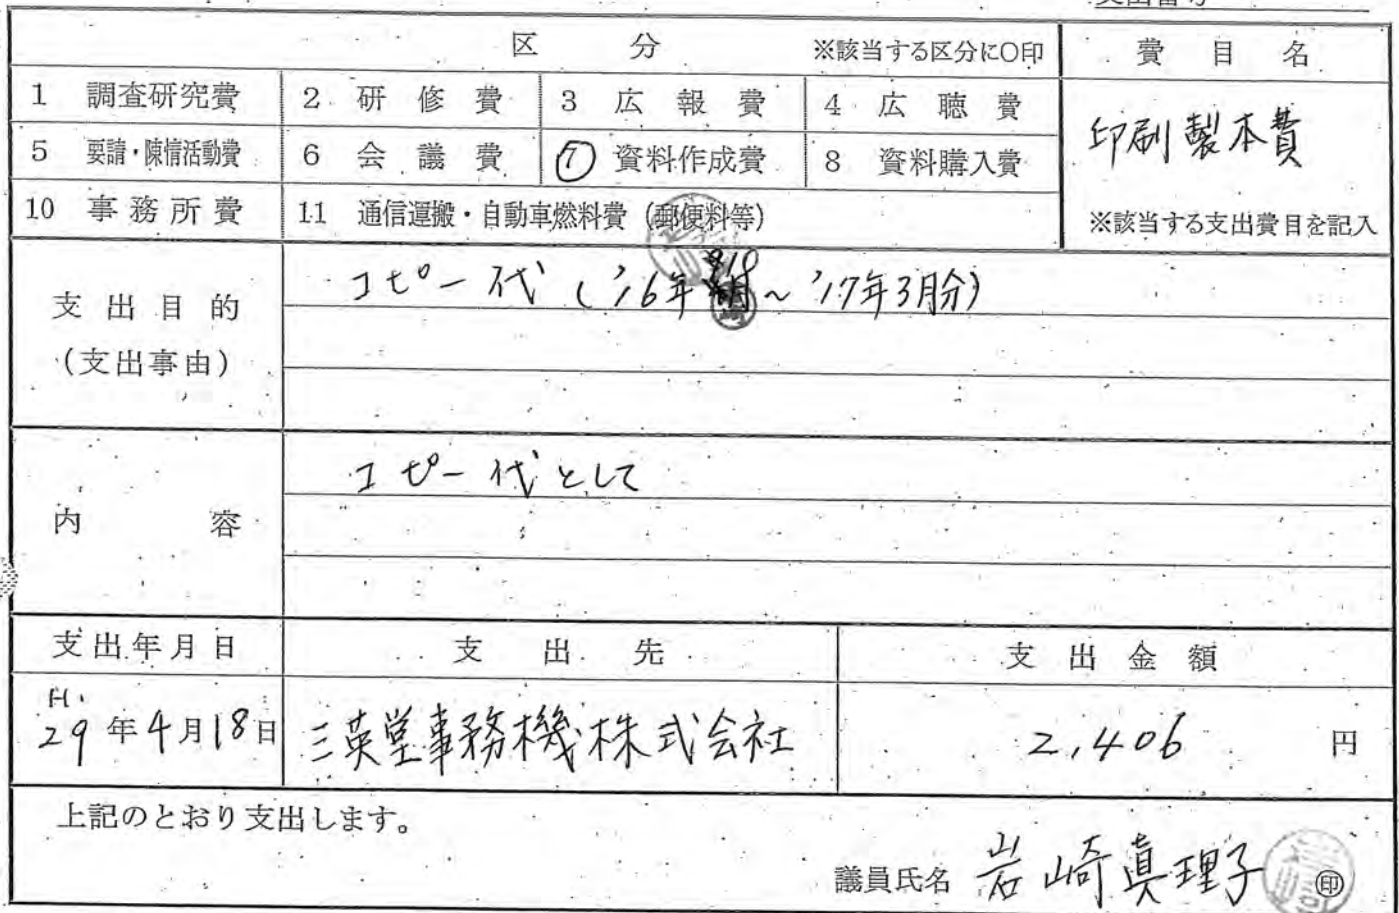 区 分 ※該当する区分に○印 費目名
1 調査研究費 2 研修費 3 広報費 4 広聴費
印刷製本費
5 要請・陳情活動費 6 会議費 ⑦ 資料作成費 8 資料購入費
10 事務所費 11 通信運搬・自動車燃料費(郵便料等) ※該当する支出費目を記入
支出目的
(支出事由)
コピー代('16年 ~'17年3月分)
内容
コピー代として
支出年月日 支出先 支出金額
H.29年4月18日 三英堂事務機株式会社 2,406 円
上記のとおり支出します。
議員氏名 岩崎真理子 ㊞